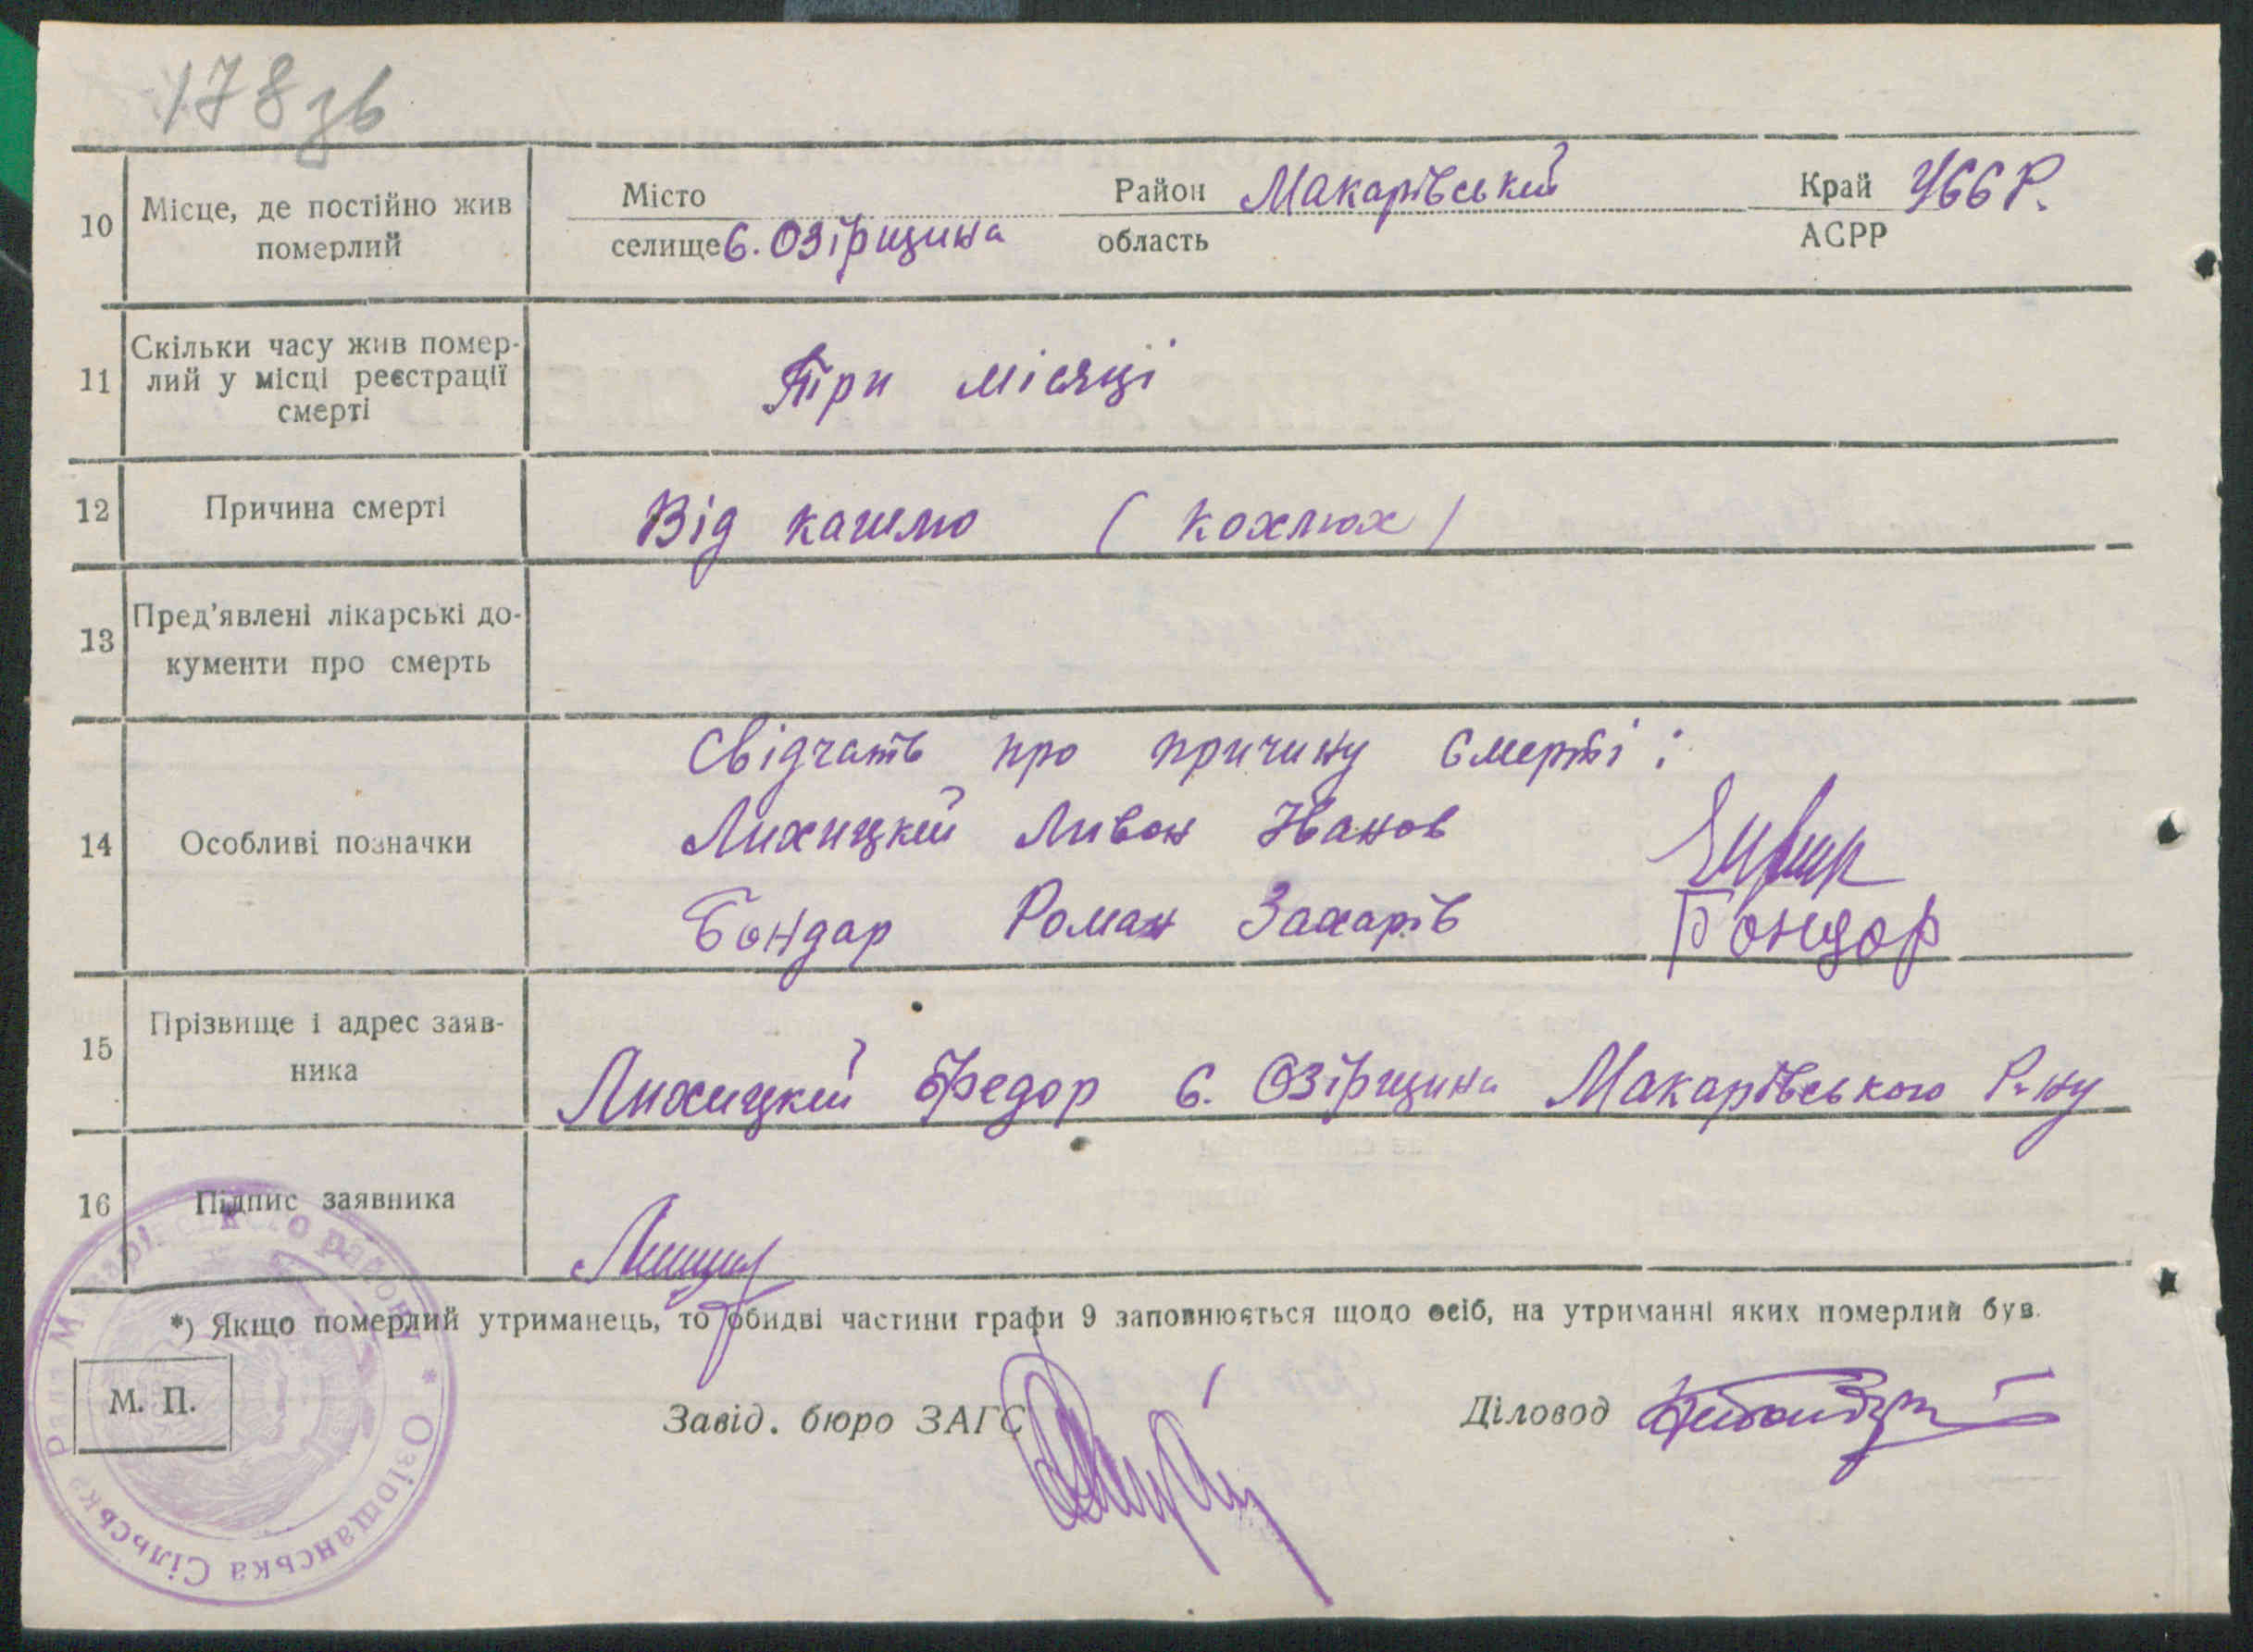 178зв
10 Місце, де постійно жив померлий
Місто Район Макарівський Край УССР.
селище с. Озірщина область АСРР
11 Скільки часу жив помер-
лий у місці реєстрації
смерті
Три місяці
12 Причина смерті Від кашлю (кохлюх)
13 Пред'явлені лікарські до-
кументи про смерть
14 Особливі позначки
Свідчать про причину смерті:
Лихицкий Ливон Іванов
Бондар Роман Захарів Бондор
15 Прізвище і адрес заяв-
ника
Лихицкий Федор с. Озірщина Макарівського Р-ну
16 Підпис заявника
*) Якщо померлий утриманець, то обидві частини графи 9 заповнюється щодо осіб, на утриманні яких померлий був.
М. П. Завід. бюро ЗАГС Діловод
Озірщанська Сільська Рада Макарівського району *